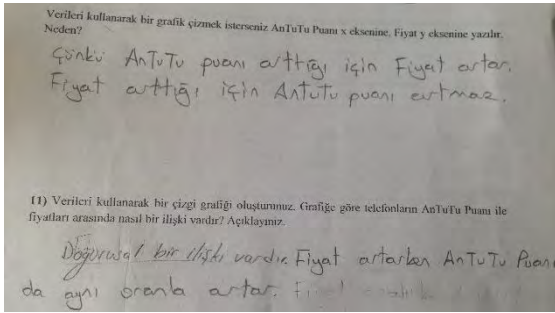 Verileri kullanarak bir grafik çizmek isterseniz AnTuTu Puanı x eksenine, Fiyat y eksenine yazılır.
Neden?
Çünkü AnTuTu puanı arttığı için Fiyat artar.
Fiyat arttığı için AnTuTu puanı artmaz.
11) Verileri kullanarak bir çizgi grafiği oluşturunuz. Grafiğe göre telefonların AnTuTu Puanı ile
fiyatları arasında nasıl bir ilişki vardır? Açıklayınız.
Doğorusal bir ilişki vardır. Fiyat artarken AnTuTu Puanı
da aynı oranla artar.